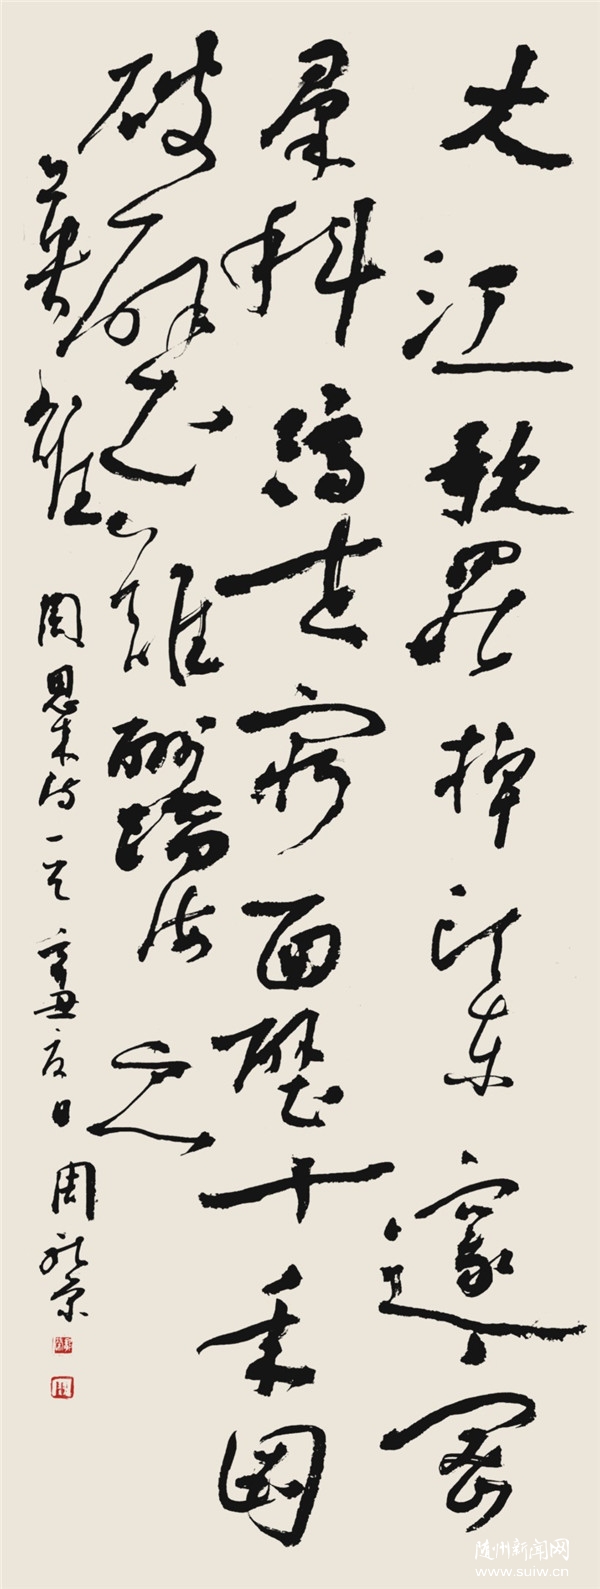 大江歌罷掉頭東邃密
群科濟世窮面壁十年圖
破壁難酬蹈海亦
英雄 周恩来詩一首 辛丑夏日 周
随州新闻网
www.suiw.cn